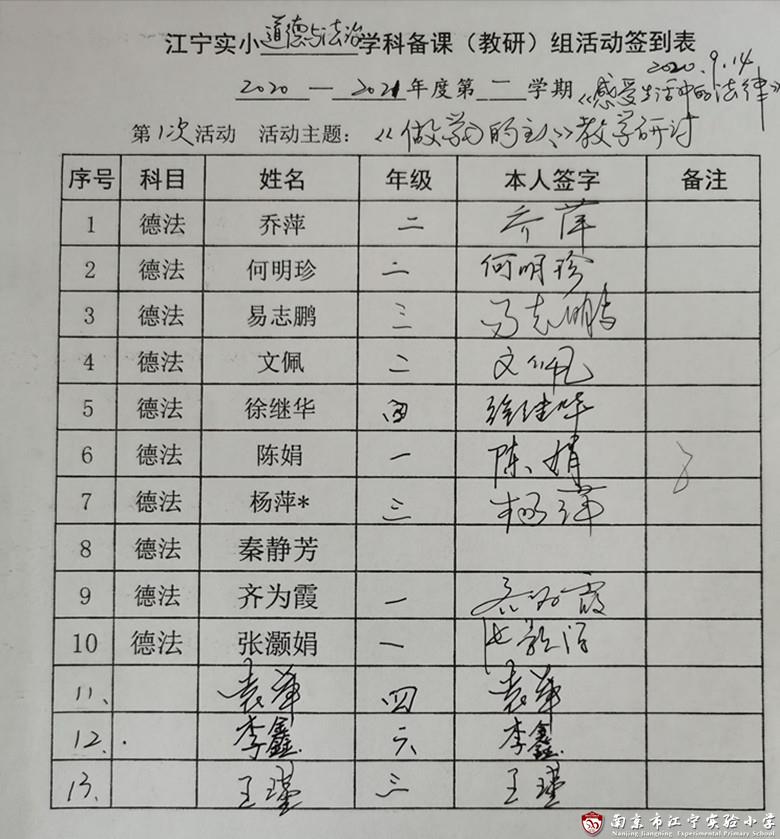 江宁实小道德与法治学科备课（教研）组活动签到表
2020.9.14
2020—2021年度第一学期《感受生活中的法律》
第1次活动 活动主题：《做学习的主人》教学研讨
序号 科目 姓名 年级 本人签字 备注
1 德法 乔萍 二 乔萍
2 德法 何明珍 二 何明珍
3 德法 易志鹏 三 易志鹏
4 德法 文佩 二 文佩
5 德法 徐继华 四 徐继华
6 德法 陈娟 一 陈娟
7 德法 杨萍* 三 杨萍
8 德法 秦静芳
9 德法 齐为霞 一 齐为霞
10 德法 张灏娟 一
11、 袁华 四 袁华
12、 李鑫 六 李鑫
13、 王瑾 三 王瑾
南京市江宁实验小学
Nanjing Jiangning Experimental Primary School